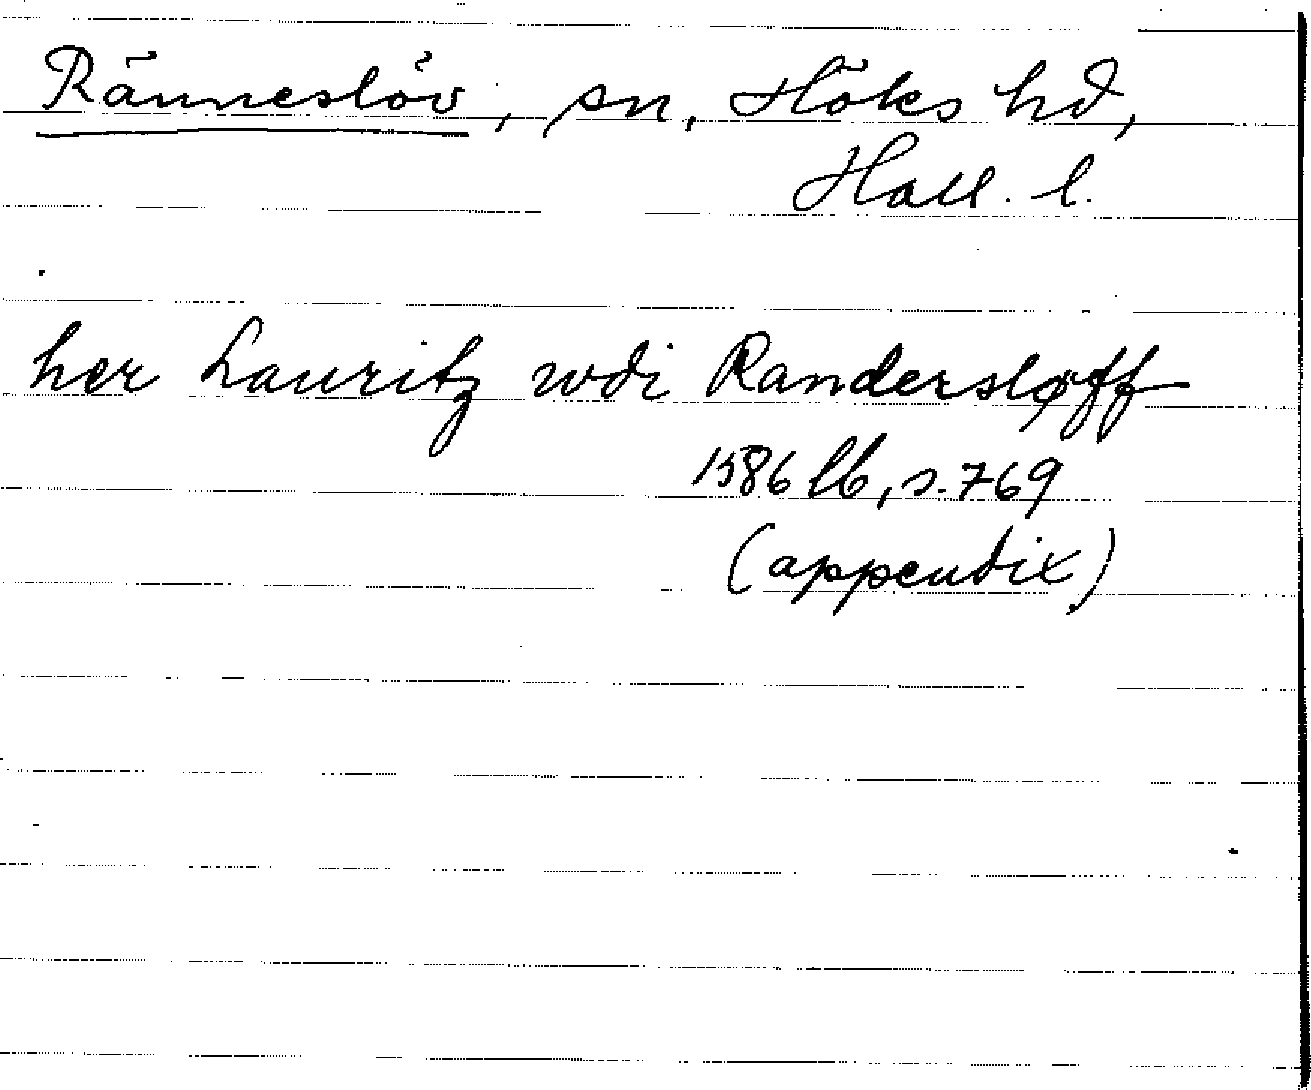 Ränneslöv, sn, Höks hd,
Hall. l.
her Lauritz wdi Randersløff
1586 lb, s. 769
(appendix)